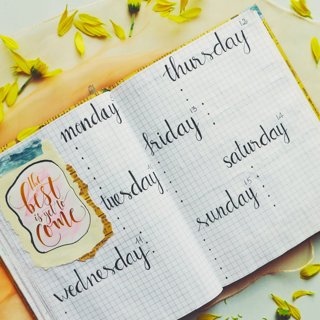 monday
the
best
is yet to
come
tuesday
wednesday
thursday
12
friday
13
saturday
14
sunday
15